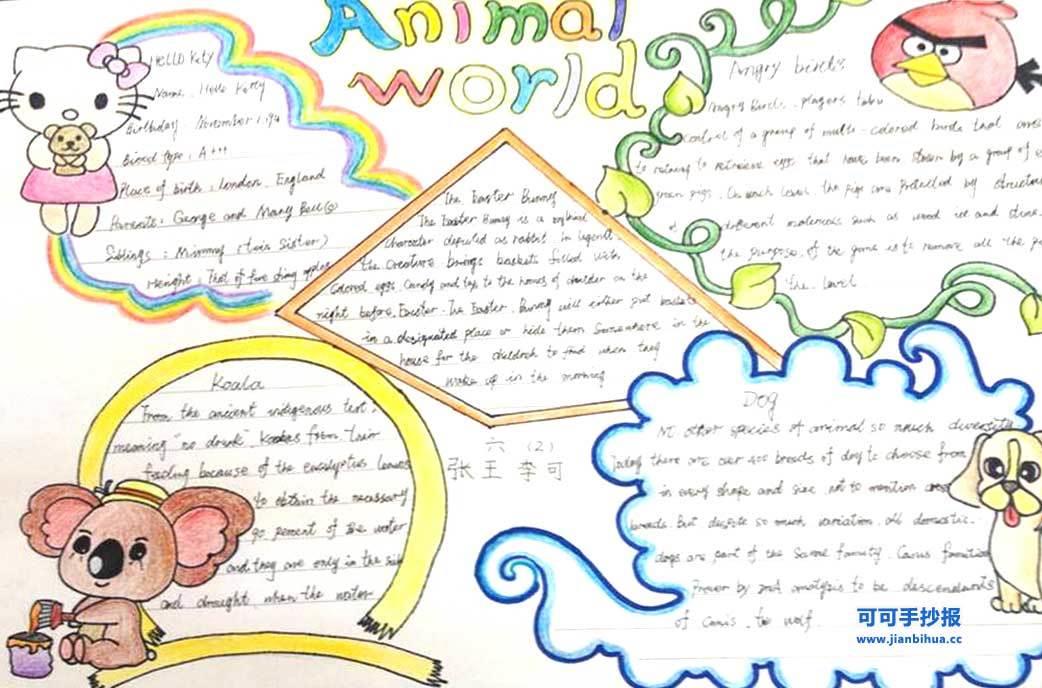 Animal
world
HELLO Kity
Name. Hello Kitty
Birthday. November 1.194
Blood type: A+++
Place of birth: London. England
Parents: George and Mary Bell
Siblings: Mimmy (twin Sister)
Height. That of five shing apples
Angry birds
Angry Birds. players take
control of a group of multi-colored birds that are
to retrieve eggs that have been stolen by a group of
green pigs. On each level. the pigs are by structures
of different materials such as wood ice and stone.
the purpose of the game is to remove all the
the level
The Easter Bunny
The Easter Bunny is a mythical
character depicted as rabbit. In legend.
the creature brings baskets filled with
colored eggs. Candy and toy to the homes of on the
night before Easter. The Easter. Bunny will either put baskets
in a designated place or hide them Somewhere in the
house for the children to find when they
wake up in the morning
Koala
From the ancient indigenous text.
meaning "no drink" koalas from their
feeding because of the eucalyptus leaves
to obtain the necessary
90 percent of the water
and they are only in the sick
and drought when the water
六 (2)
张王李可
Dog
No other species of animal so much diversity
Today there are over 400 breeds of dog to choose from
in every shape and size not to mention cross
breeds. But despite so much variation. all domestic.
dogs are part of the same family. Canis
Proven by analysis to be descendants
of Canis. to wolf.
可可手抄报
www.jianbihua.cc